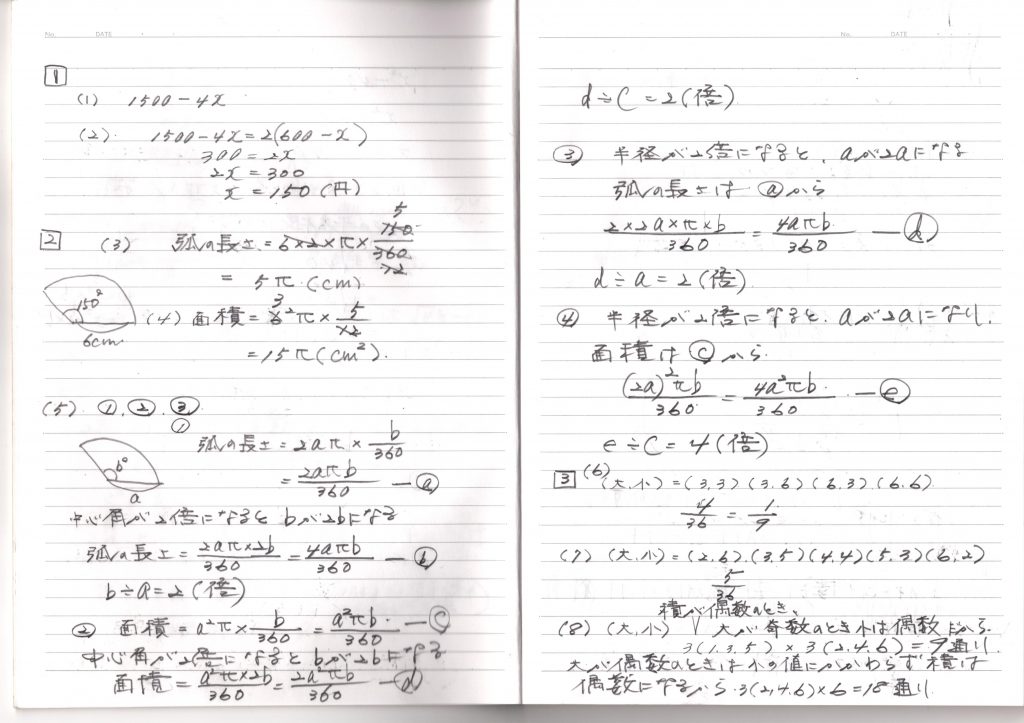 No. DATE
1
(1) 1500-4x
(2). 1500-4x=2(600-x)
300=2x
2x=300
x=150(円)
2 (3) 弧の長さ=6×2×π×150/360 5 ×2
= 5π (cm)
150°
6cm
(4) 面積=6²π×5/×2 3
=15π(cm²).
(5) ①,②,③
①
弧の長さ=2aπ×b/360
b°
a
=2aπb/360 —ⓐ
中心角が2倍になると bが2bになる
弧の長さ=2aπ×2b/360=4aπb/360 —ⓑ
b÷a=2(倍)
② 面積=a²π×b/360=a²πb/360 —ⓒ
中心角が2倍になるとbが2bになる
面積=a²π×2b/360=2a²πb/360 —ⓓ
No. DATE
d÷C=2(倍)
③ 半径が2倍になると、aが2aになる
弧の長さは ⓐから
2×2a×π×b/360=4aπb/360
d÷a=2(倍)
④ 半径が2倍になると、aが2aになり、
面積はⓒから
(2a)²πb/360=4a²πb/360 —ⓔ
e÷C=4(倍)
3 (6) (大,小)=(3,3)(3,6)(6,3)(6,6)
4/36=1/9
(7) (大,小)=(2,6),(3,5)(4,4)(5,3)(6,2)
5/36
積が偶数のとき、
(8) (大,小) 大が奇数のとき小は偶数だから
3(1,3,5)×3(2,4,6)=9通り
大が偶数のときは小の値にかかわらず積は
偶数になるから3(2,4,6)×6=18通り